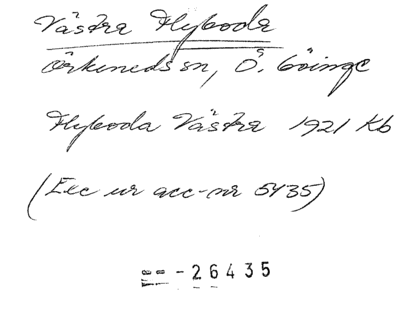 Västra Flyboda
Örkeneds sn, Ö. Göinge
Flyboda Västra 1921 Kb
(Exc ur acc-nr 5435)
-26435